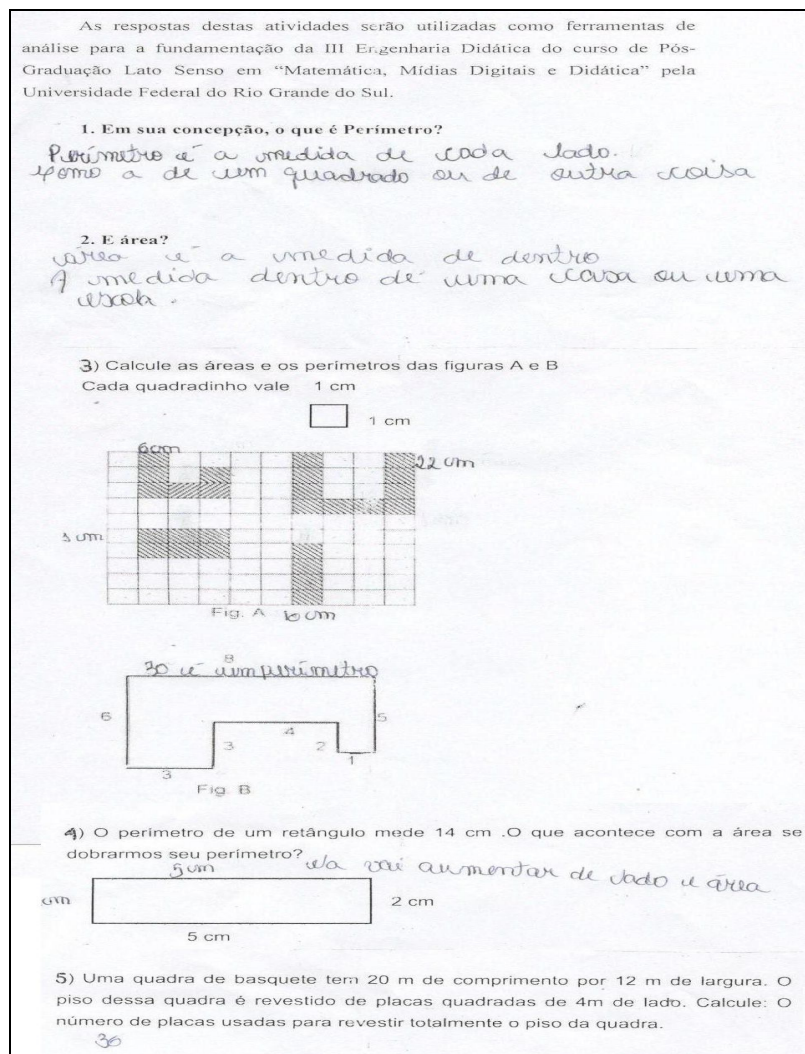 As respostas destas atividades serão utilizadas como ferramentas de
análise para a fundamentação da III Engenharia Didática do curso de Pós-
Graduação Lato Senso em “Matemática, Mídias Digitais e Didática” pela
Universidade Federal do Rio Grande do Sul.
1. Em sua concepção, o que é Perímetro?
Perímetro é a medida de cada lado.
como a de um quadrado ou de outra coisa
2. E área?
área é a medida de dentro
A medida dentro de uma casa ou uma
escola.
3) Calcule as áreas e os perímetros das figuras A e B
Cada quadradinho vale 1 cm
1 cm
6cm
22 cm
cm
Fig. A
cm
8
30 é um perímetro
6
5
4
3
2
1
3
Fig. B
4) O perímetro de um retângulo mede 14 cm .O que acontece com a área se
dobrarmos seu perímetro? ela vai aumentar de lado e área
5cm
cm
2 cm
5 cm
5) Uma quadra de basquete tem 20 m de comprimento por 12 m de largura. O
piso dessa quadra é revestido de placas quadradas de 4m de lado. Calcule: O
número de placas usadas para revestir totalmente o piso da quadra.